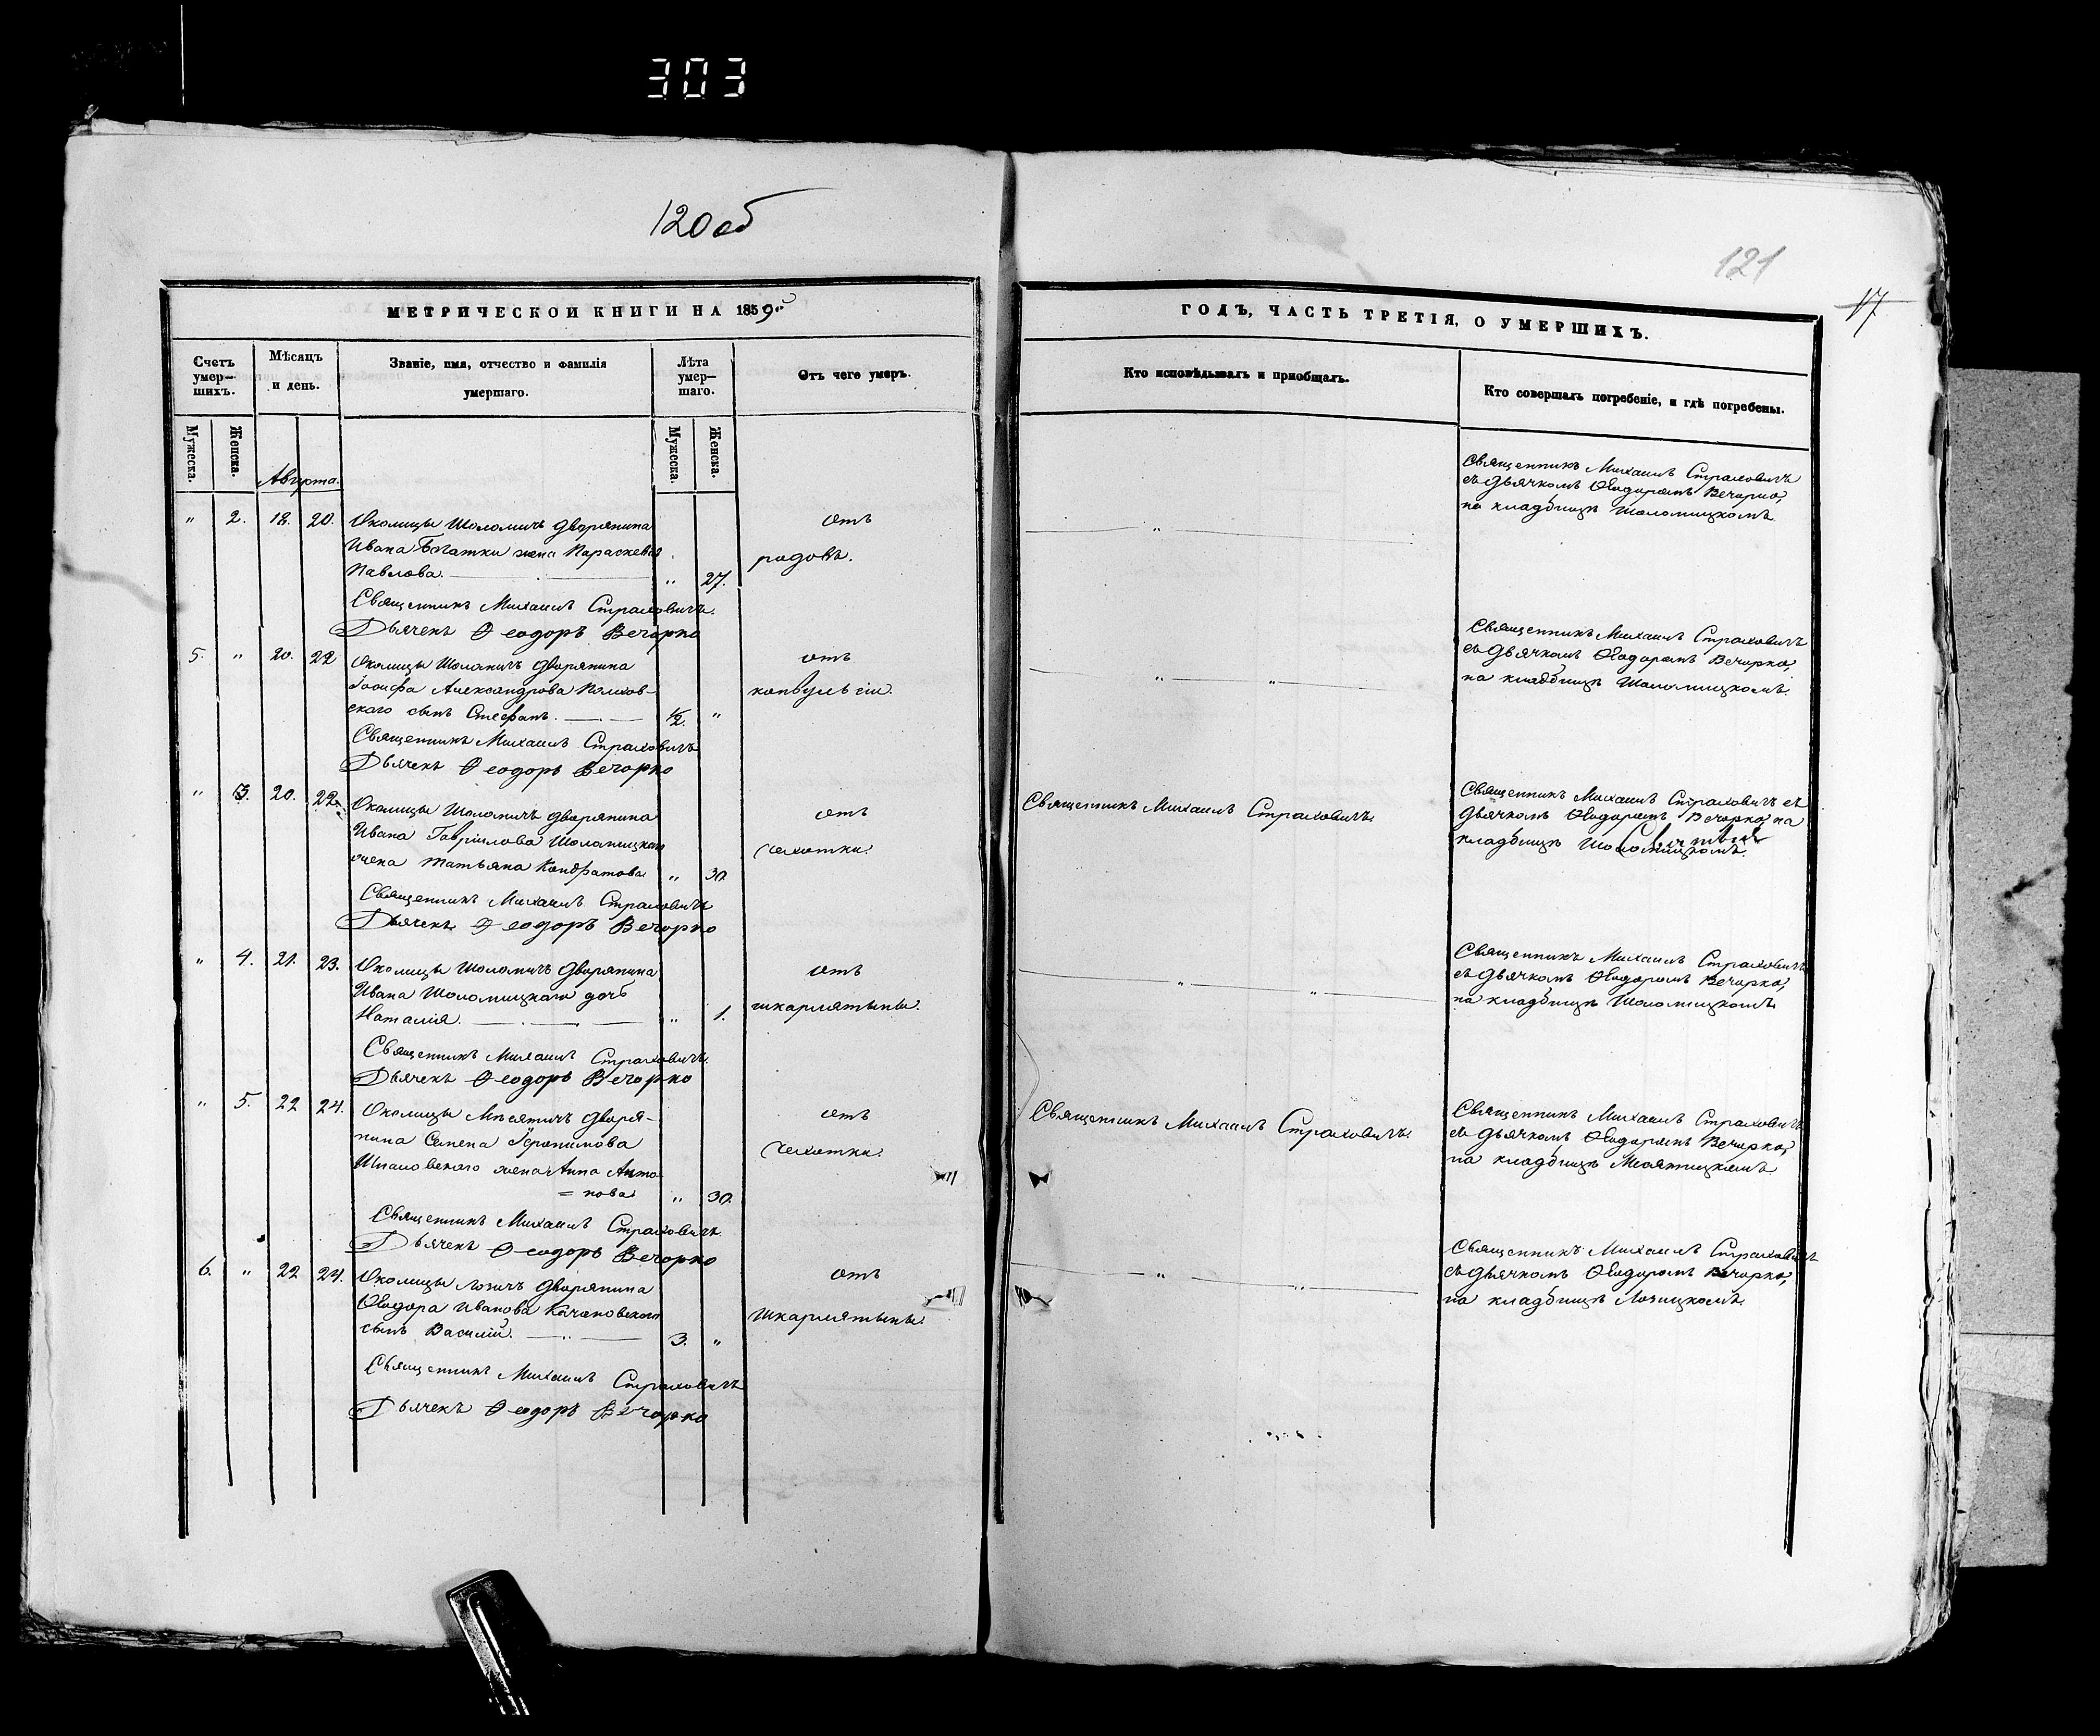 303
120 об
121
17
МЕТРИЧЕСКОЙ КНИГИ НА 1859й
ГОДЪ, ЧАСТЬ ТРЕТІЯ, О УМЕРШИХЪ.
Счетъ умер-шихъ.
Мѣсяцъ и день.
Званіе, имя, отчество и фамилія
умершаго.
Лѣта умер-шаго.
Отъ чего умеръ.
Кто исповѣдывалъ и пріобщалъ.
Кто совершалъ погребеніе, и гдѣ погребены.
Мужеска.
Женска.
Мужеска.
Женска.
Августа.
" 2. 18. 20. Околицы Шоломичъ дворянина
Ивана Богатки жена Параскевія
Павлова. " 27.
отъ
родовъ.
"
Священникъ Михаилъ Страховичъ
съ дьячкомъ Ѳеодоромъ Вечорко,
на кладбищѣ Шоломицкомъ.
Священникъ Михаилъ Страховичъ.
Дьячекъ Ѳеодоръ Вечорко
5. " 20. 22 Околицы Шоломичъ дворянина
Іосифа Александрова
скаго сынъ Стефанъ. 1/2. "
отъ
конвульсіи.
" "
Священникъ Михаилъ Страховичъ
съ дьячкомъ Ѳеодоромъ Вечорко,
на кладбищѣ Шоломицкомъ.
Священникъ Михаилъ Страховичъ
Дьячекъ Ѳеодоръ Вечорко
" 3. 20. 22. Околицы Шоломичъ дворянина
Ивана Гавріилова Шоломицкаго
жена Татьяна Кондратова " 30
отъ
чахотки.
Священникъ Михаилъ Страховичъ.
Священникъ Михаилъ Страховичъ съ
дьячкомъ Ѳеодоромъ Вечорко, на
кладбищѣ Шоломицкомъ.
Священникъ Михаилъ Страховичъ
Дьячекъ Ѳеодоръ Вечорко
" 4. 21. 23. Околицы Шоломичъ дворянина
Ивана Шоломицкаго дочь
Наталія. " 1.
отъ
шкарлятыны.
" "
Священникъ Михаилъ Страховичъ
съ дьячкомъ Ѳеодоромъ Вечорко,
на кладбищѣ Шоломицкомъ.
Священникъ Михаилъ Страховичъ.
Дьячекъ Ѳеодоръ Вечорко
" 5. 22 24. Околицы Мнсятичъ дворя-
нина Семена Іеронимова
жена Анна Анто
= нова " 30.
отъ
чахотки.
Священникъ Михаилъ Страховичъ.
Священникъ Михаилъ Страховичъ
съ дьячкомъ Ѳеодоромъ Вечорко,
на кладбищѣ
Священникъ Михаилъ Страховичъ.
Дьячекъ Ѳеодоръ Вечорко
6. " 22 24. Околицы Лозичъ дворянина
Ѳеодора Иванова Качановскаго
сынъ Василій. 3. "
отъ
шкарлятыны.
" "
Священникъ Михаилъ Страховичъ
съ дьячкомъ Ѳеодоромъ Вечорко,
на кладбищѣ Лозицкомъ.
Священникъ Михаилъ Страховичъ
Дьячекъ Ѳеодоръ Вечорко